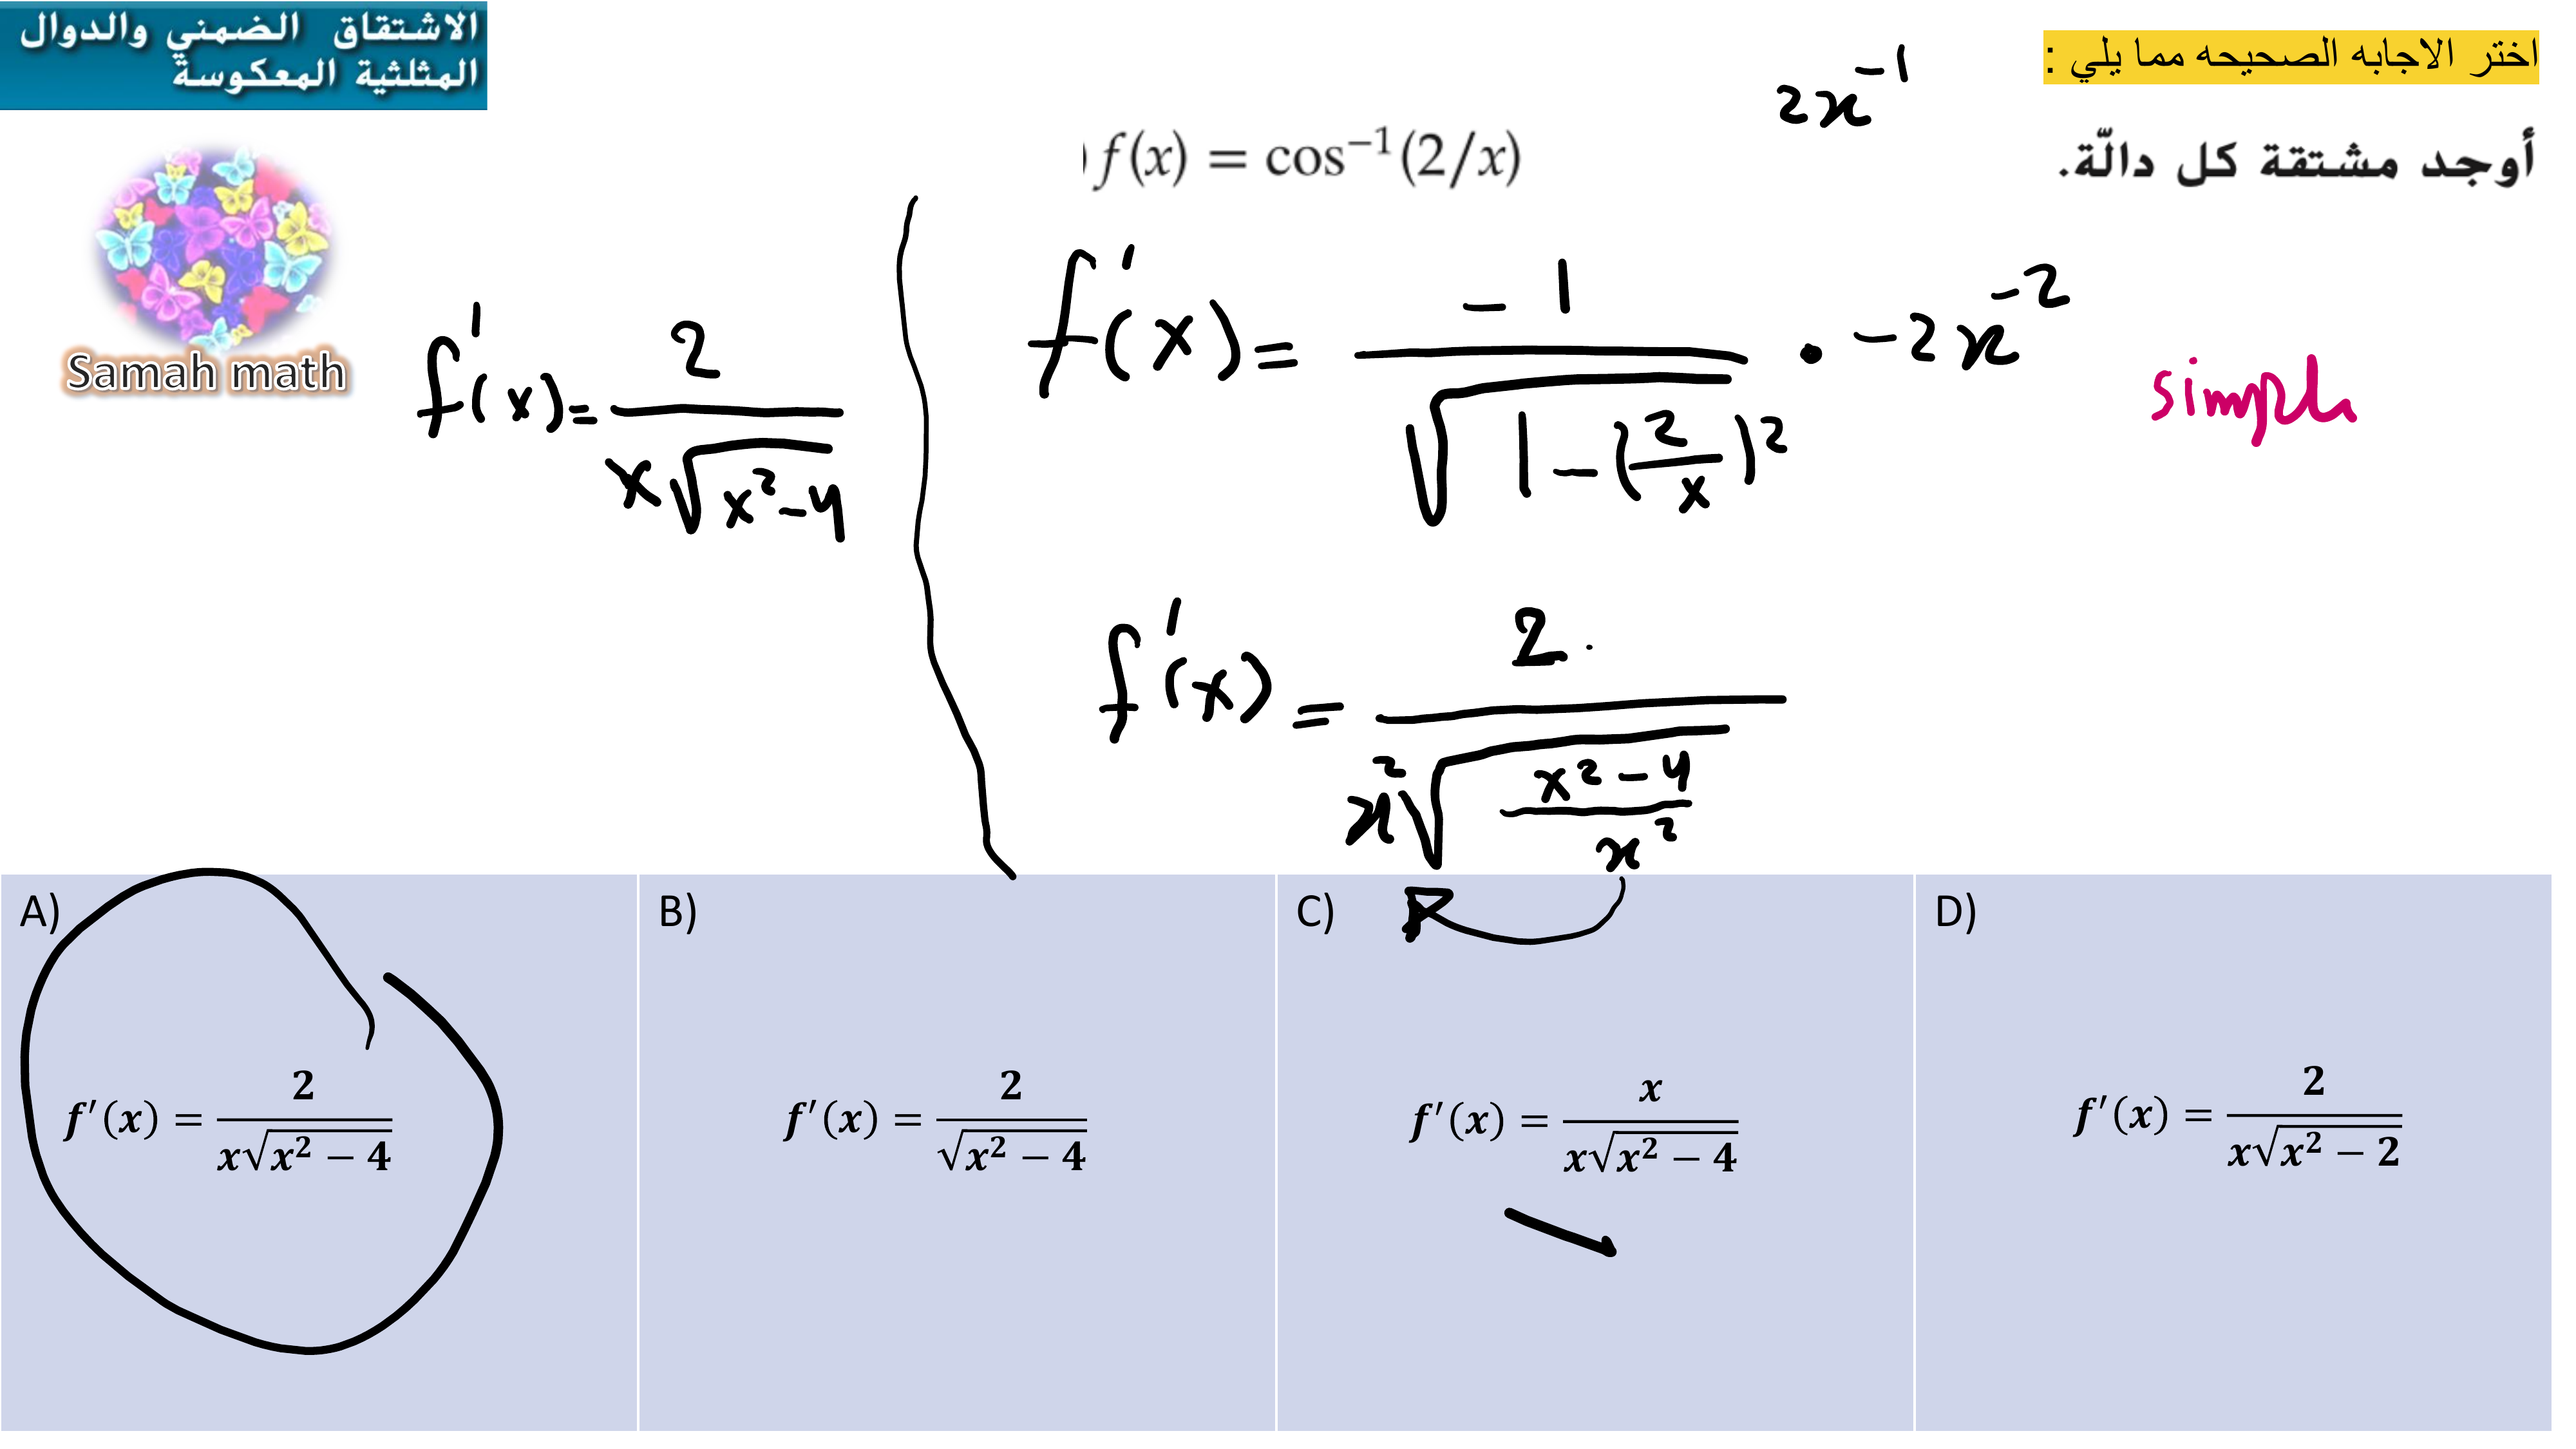 الاشتقاق الضمني والدوال
المثلثية المعكوسة
اختر الاجابه الصحيحه مما يلي :
أوجد مشتقة كل دالّة.
2x⁻¹
) f(x) = cos⁻¹(2/x)
Samah math
f'(x) = -1 / √(1 - (2/x)²) · -2x⁻²
f'(x) = 2 / (x² √((x² - 4)/x²))
f'(x) = 2 / (x√(x² - 4))
A)
f′(x) = 2 / (x√(x² − 4))
B)
f′(x) = 2 / √(x² − 4)
C)
f′(x) = x / (x√(x² − 4))
D)
f′(x) = 2 / (x√(x² − 2))